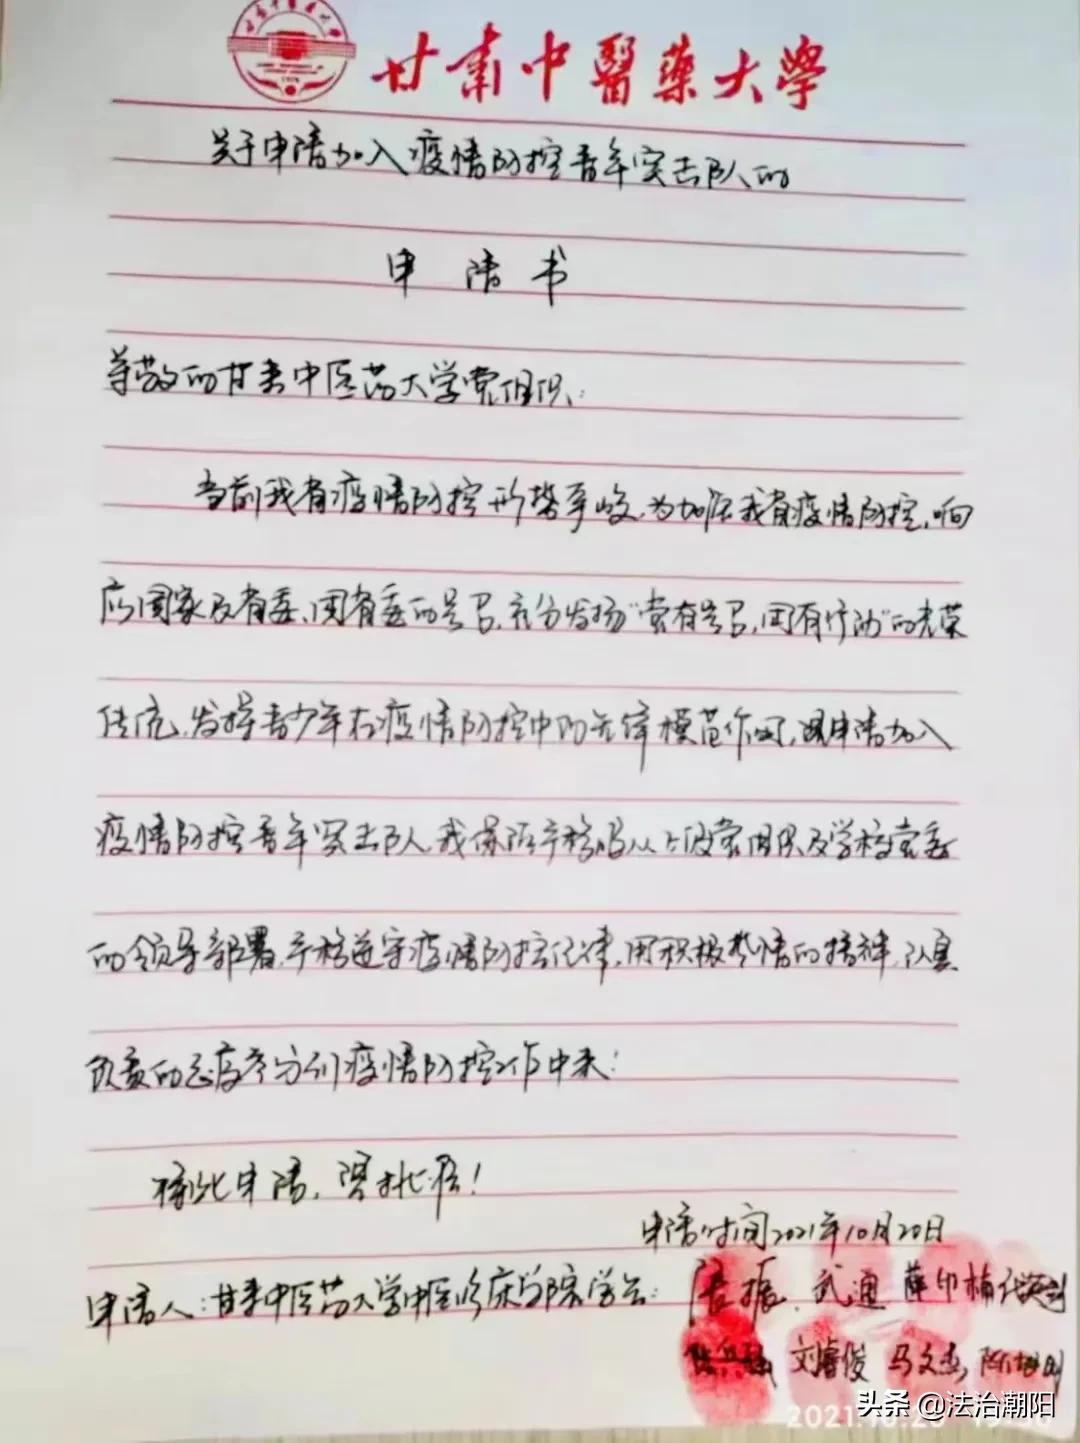 甘肅中醫藥大學
关于申请加入疫情防控青年突击队的
申 请 书
尊敬的甘肃中医药大学党组织:
当前我省疫情防控形势严峻,为加强我省疫情防控,响
应国家及省委、团省委的号召,充分发扬“党有号召,团有行动”的光荣
传统,发挥青少年在疫情防控中的先锋模范作用,现申请加入
疫情防控青年突击队,我保证严格服从上级党组织及学校党委
的领导部署,严格遵守疫情防控纪律,用积极热情的精神,认真
负责的态度参与到疫情防控工作中来!
特此申请,望批准!
申请时间2021年10月20日
申请人:甘肃中医药大学中医临床学院学生: 振、武通
刘睿俊 马文杰
头条 @法治潮阳
2021.10.20